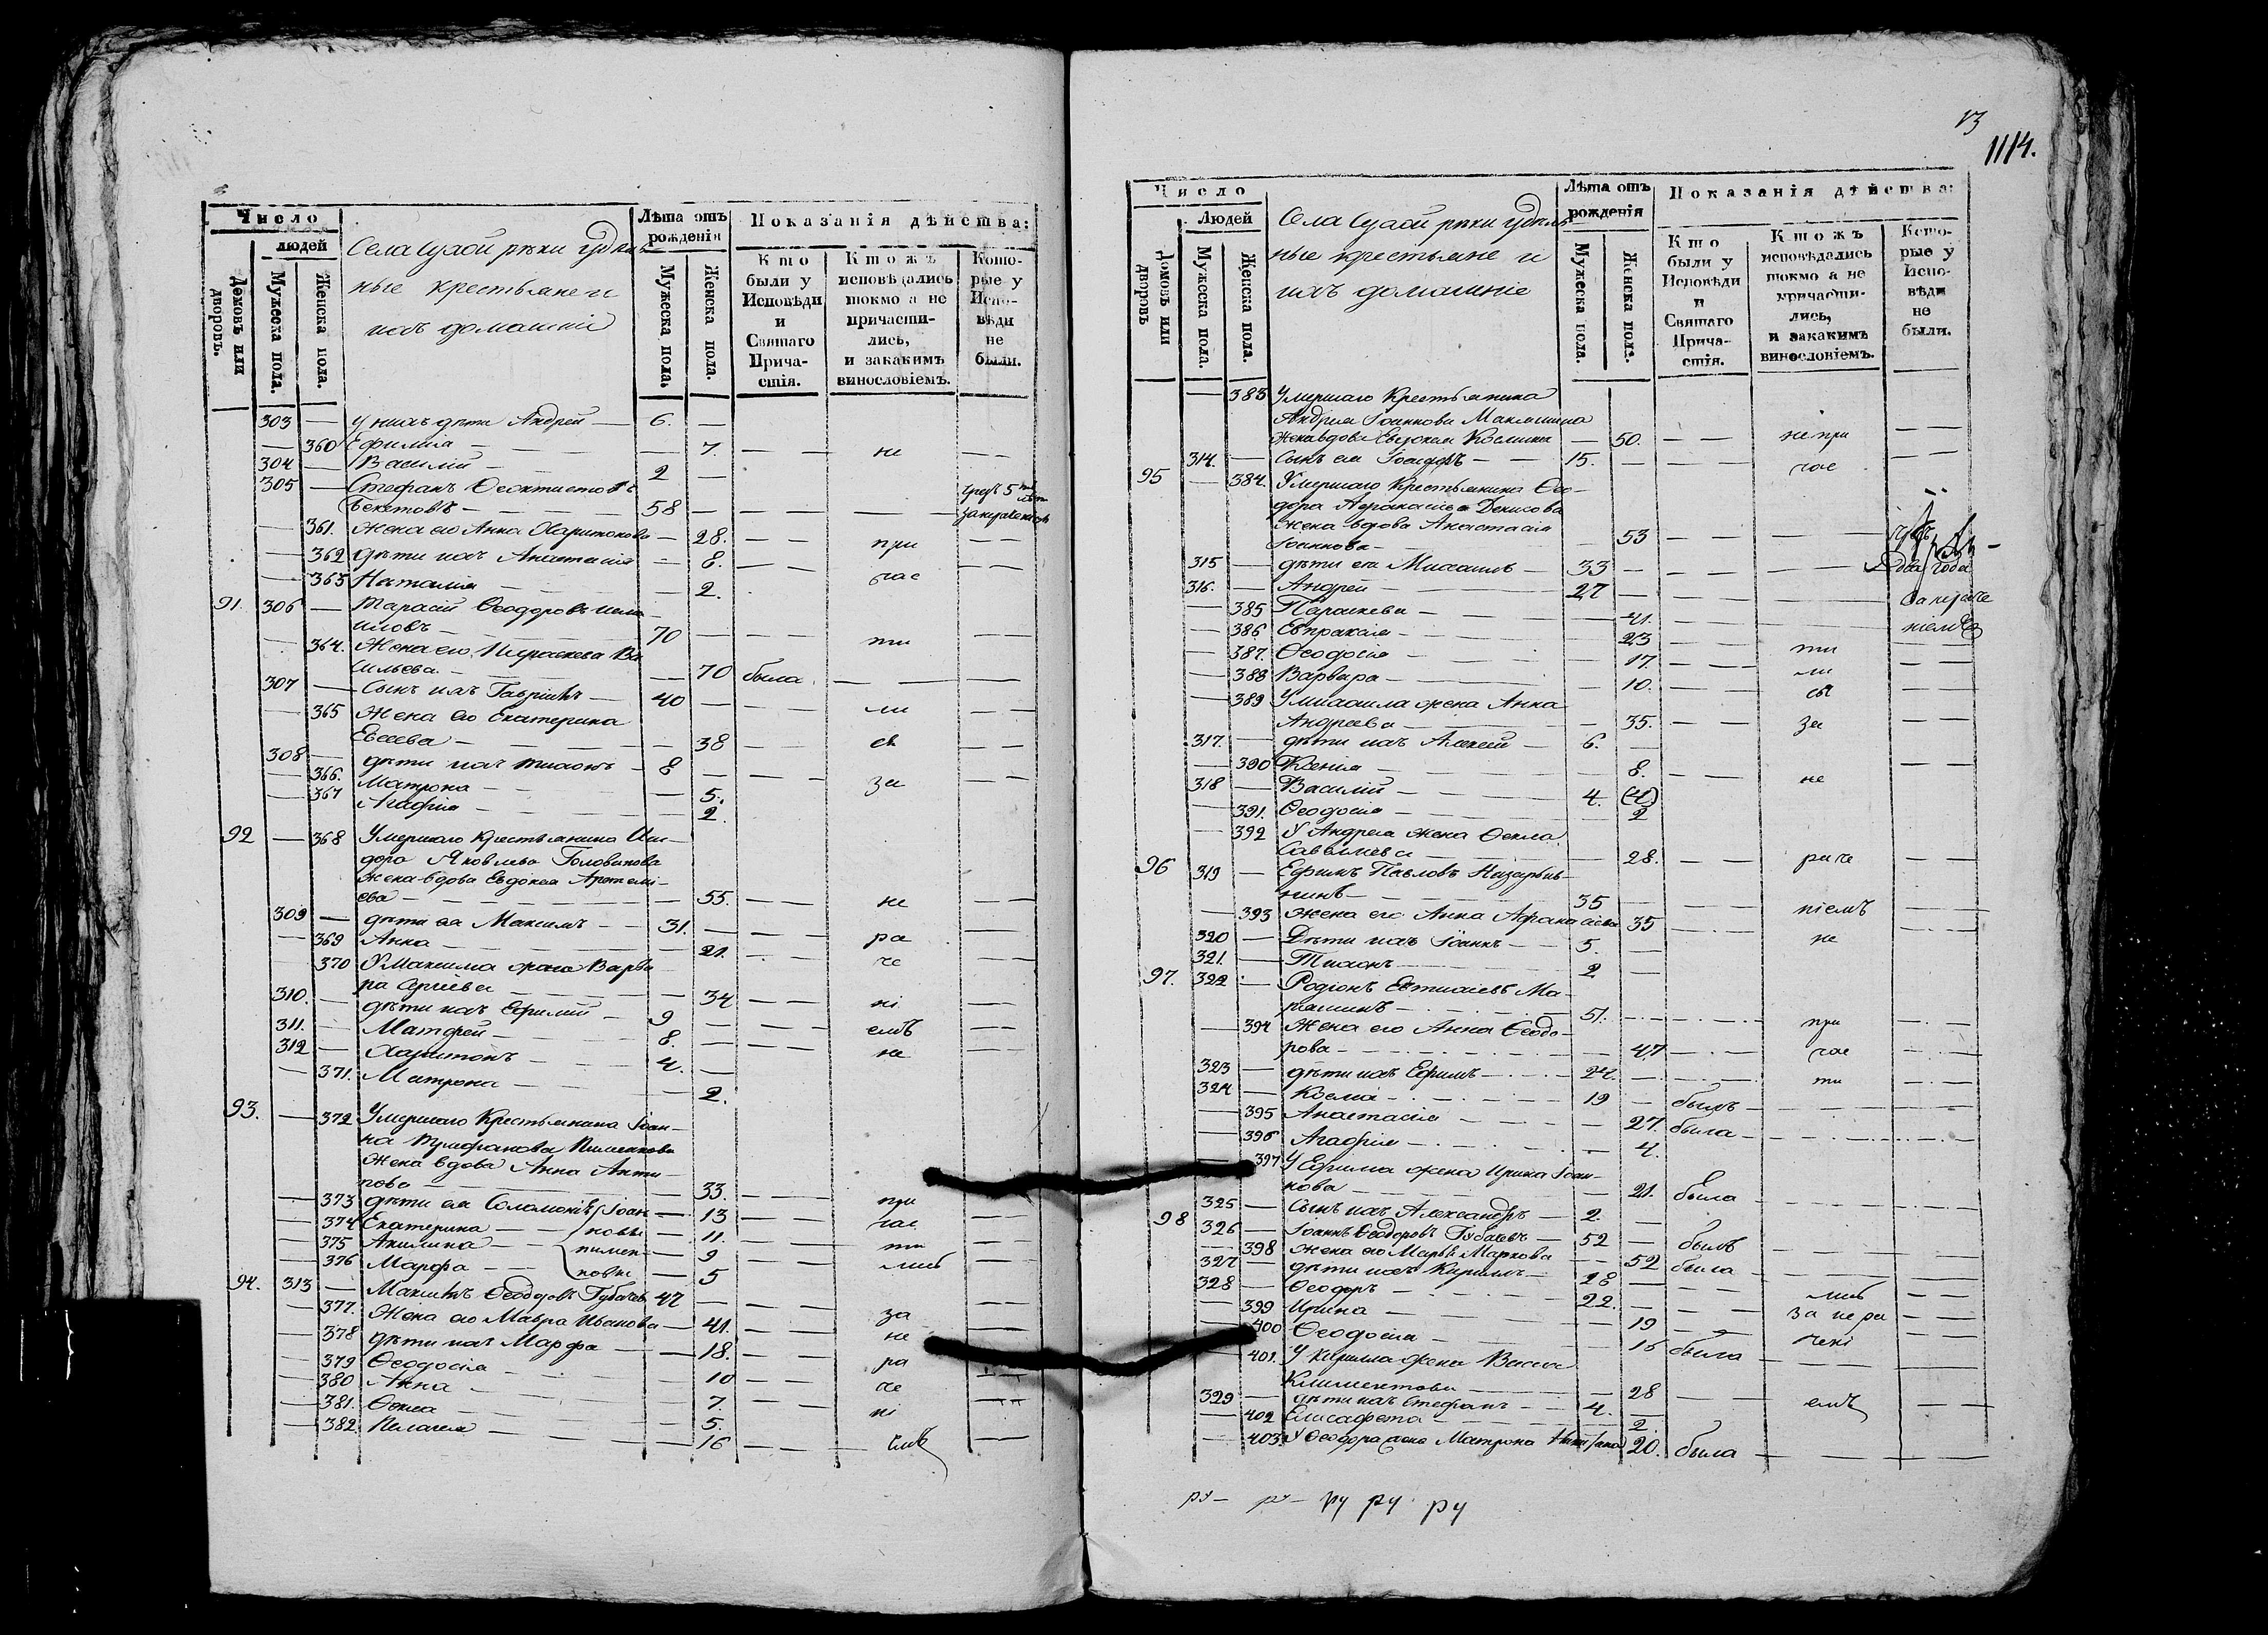 Число
людей
Домовъ или дворовъ.
Мужеска пола.
Женска пола.
Села Сухой рѣки удѣль-
ные крестьяне и
ихъ домашніе
Лѣта отъ рожденія
Мужеска пола.
Женска пола.
Показанія дѣйства:
Кто были у Исповѣди и Святаго Прича-стія.
Ктожъ исповѣдались токмо а не причасти-лись, и закакимъ винословіемъ.
Кото-рые у Испо-вѣди не были.
303 — у нихъ дѣти Андрей — 6. —
— 360 Ефимія — — 7. — — не — —
304 — Василій — 2 —
305 — Стефанъ Ѳеоктистовъ
Бекетовъ — 58 — — — —
— 361. жена его Анна Харитонова — 28. — — при — —
— 362 дѣти ихъ Анастасія — 8. — — — —
— 363 Наталія — — 2. час
91. 306 — Тарасій Ѳеодоровъ
70 — — — ти — —
— 364. Жена его Параскева Ва
сильева — — 70 была — — —
307 — Сынъ ихъ Гавріилъ — 40 — — — ли — —
— 365 Жена его Екатерина
Евсеева — — 38 — — съ — —
308 — дѣти ихъ Тихонъ — 8 — — — за — —
— 366. Матрона — — 5.
— 367 Агафія — — 2.
92 — 368 Умершаго Крестьянина Иси-
дора Яковлева Головинова
жена вдова Евдокія Артемі-
ева — — 55. — — не — —
309 — дѣти ея Максимъ — 31. — — — ра —
— 369 Анна — — 21. — — че —
370 У Максима жена Варва
ра Сергеева — — 34 — — ні —
310. — дѣти ихъ Ефимій — 9 — — — емъ —
311. — Матфей — 8. — — — не —
312 — Харитонъ — 4. —
— 371. Матрона — — 2.
93. — 372 Умершаго Крестьянина Іоан-
на
Жена вдова Анна Анти-
пова — — 33. — — при —
— 373 дѣти ея Соломонія Іоан — 13 — — час —
— 374 Екатерина — новы — 11. — — ти —
— 375 Акилина — пимен — 9 — — лись —
— 376 Марфа — новы — 5
94. 313 — Максимъ Ѳеодоровъ Губачевъ 47 — — — за —
— 377. Жена его Мавра Иванова — 41. — — не —
— 378 дѣти ихъ Марфа — — 18. — — ра —
— 379 Ѳеодосія — — 10 — — че —
— 380 Анна — — 7. — — ні —
— 381. Ѳекла — — 5
— 382. Пелагея — — 16 — — емъ —
1114.
Число
Людей
Домовъ или дворовъ
Мужеска пола.
Женска пола.
Села Сухой рѣки удѣль-
ные крестьяне и
ихъ домашніе
Лѣта отъ рожденія
Мужеска пола.
Женска пола.
Показанія дѣйства:
Кто были у Исповѣди и Святаго Прича-стія.
Ктожъ исповѣдались токмо а не причасти-лись, и закакимъ винословіемъ.
Кото-рые у Испо-вѣди не были.
— 383 Умершаго Крестьянина
Андрея Іоаннова
жена вдова Евдокія Космина — 50. — — не при — —
314. — Сынъ ея — — 15. — — — час — —
95 — 384. Умершаго Крестьянина Ѳео-
дора Аѳанасьева Денисова
жена вдова Анастасія
Іоаннова — — 53 — — —
315 — дѣти ея Михаилъ — 33 — — — два года
316. — Андрей — 27 — — —
— 385 Параскева — — 41. — —
— 386 Евпраксія — — 23 — — ти
— 387. Ѳеодосія — — 17. — — ли — —
— 388 Варвара — — 10. — — съ — —
— 389 У Михаила жена Анна
Андреева — — 35. — — за — —
317. — дѣти ихъ Алексей — 6. —
— 390 Ксенія — — 8. — — не — —
318 — Василій — 4.
— 391. Ѳеодосія — — 2
— 392 У Андрея жена Ѳекла
Савельева — — 28. — — раче — —
96 319 — Ефимъ Павловъ
35 — — — ніемъ — —
— 393 жена его Анна Аѳанасіева 35 — — не — —
320 — Дѣти ихъ Іоаннъ — 5. —
321. — Тихонъ — 2 —
97. 322 — Родіонъ Евтихіевъ Ма-
51. — — при — —
— 394 Жена его Анна Ѳеодо-
рова — — 47 — — час — —
323 — дѣти ихъ Ефимъ — 24. — — ти — —
324 — Косма — 19 — былъ —
— 395 Анастасія — — 27. была — —
— 396 Агафія — — 4.
— 397 У Ефима жена Ирина Іоан-
нова — — 21. была — —
325 — Сынъ ихъ Александръ — 2. —
98 326 — Іоаннъ Ѳеодоровъ Губачевъ — 52 — былъ — —
— 398 Жена его Марѳа Маркова — 52 была — —
327 — дѣти ихъ Кириллъ — 28 — — лись — —
328 — Ѳеодоръ — 22. — — за нера — —
— 399 Ирина — — 19 — — чені — —
— 400 Ѳеодосія — — 16 была — —
— 401. У Кирилла жена Васса
Климентова — — 28 — — емъ — —
329 — дѣти ихъ Стефанъ — 4. —
— 402 Елисавета — — 2.
— 403. У Ѳеодора жена Матрона 20. была — —
ру — ру — ру ру ру